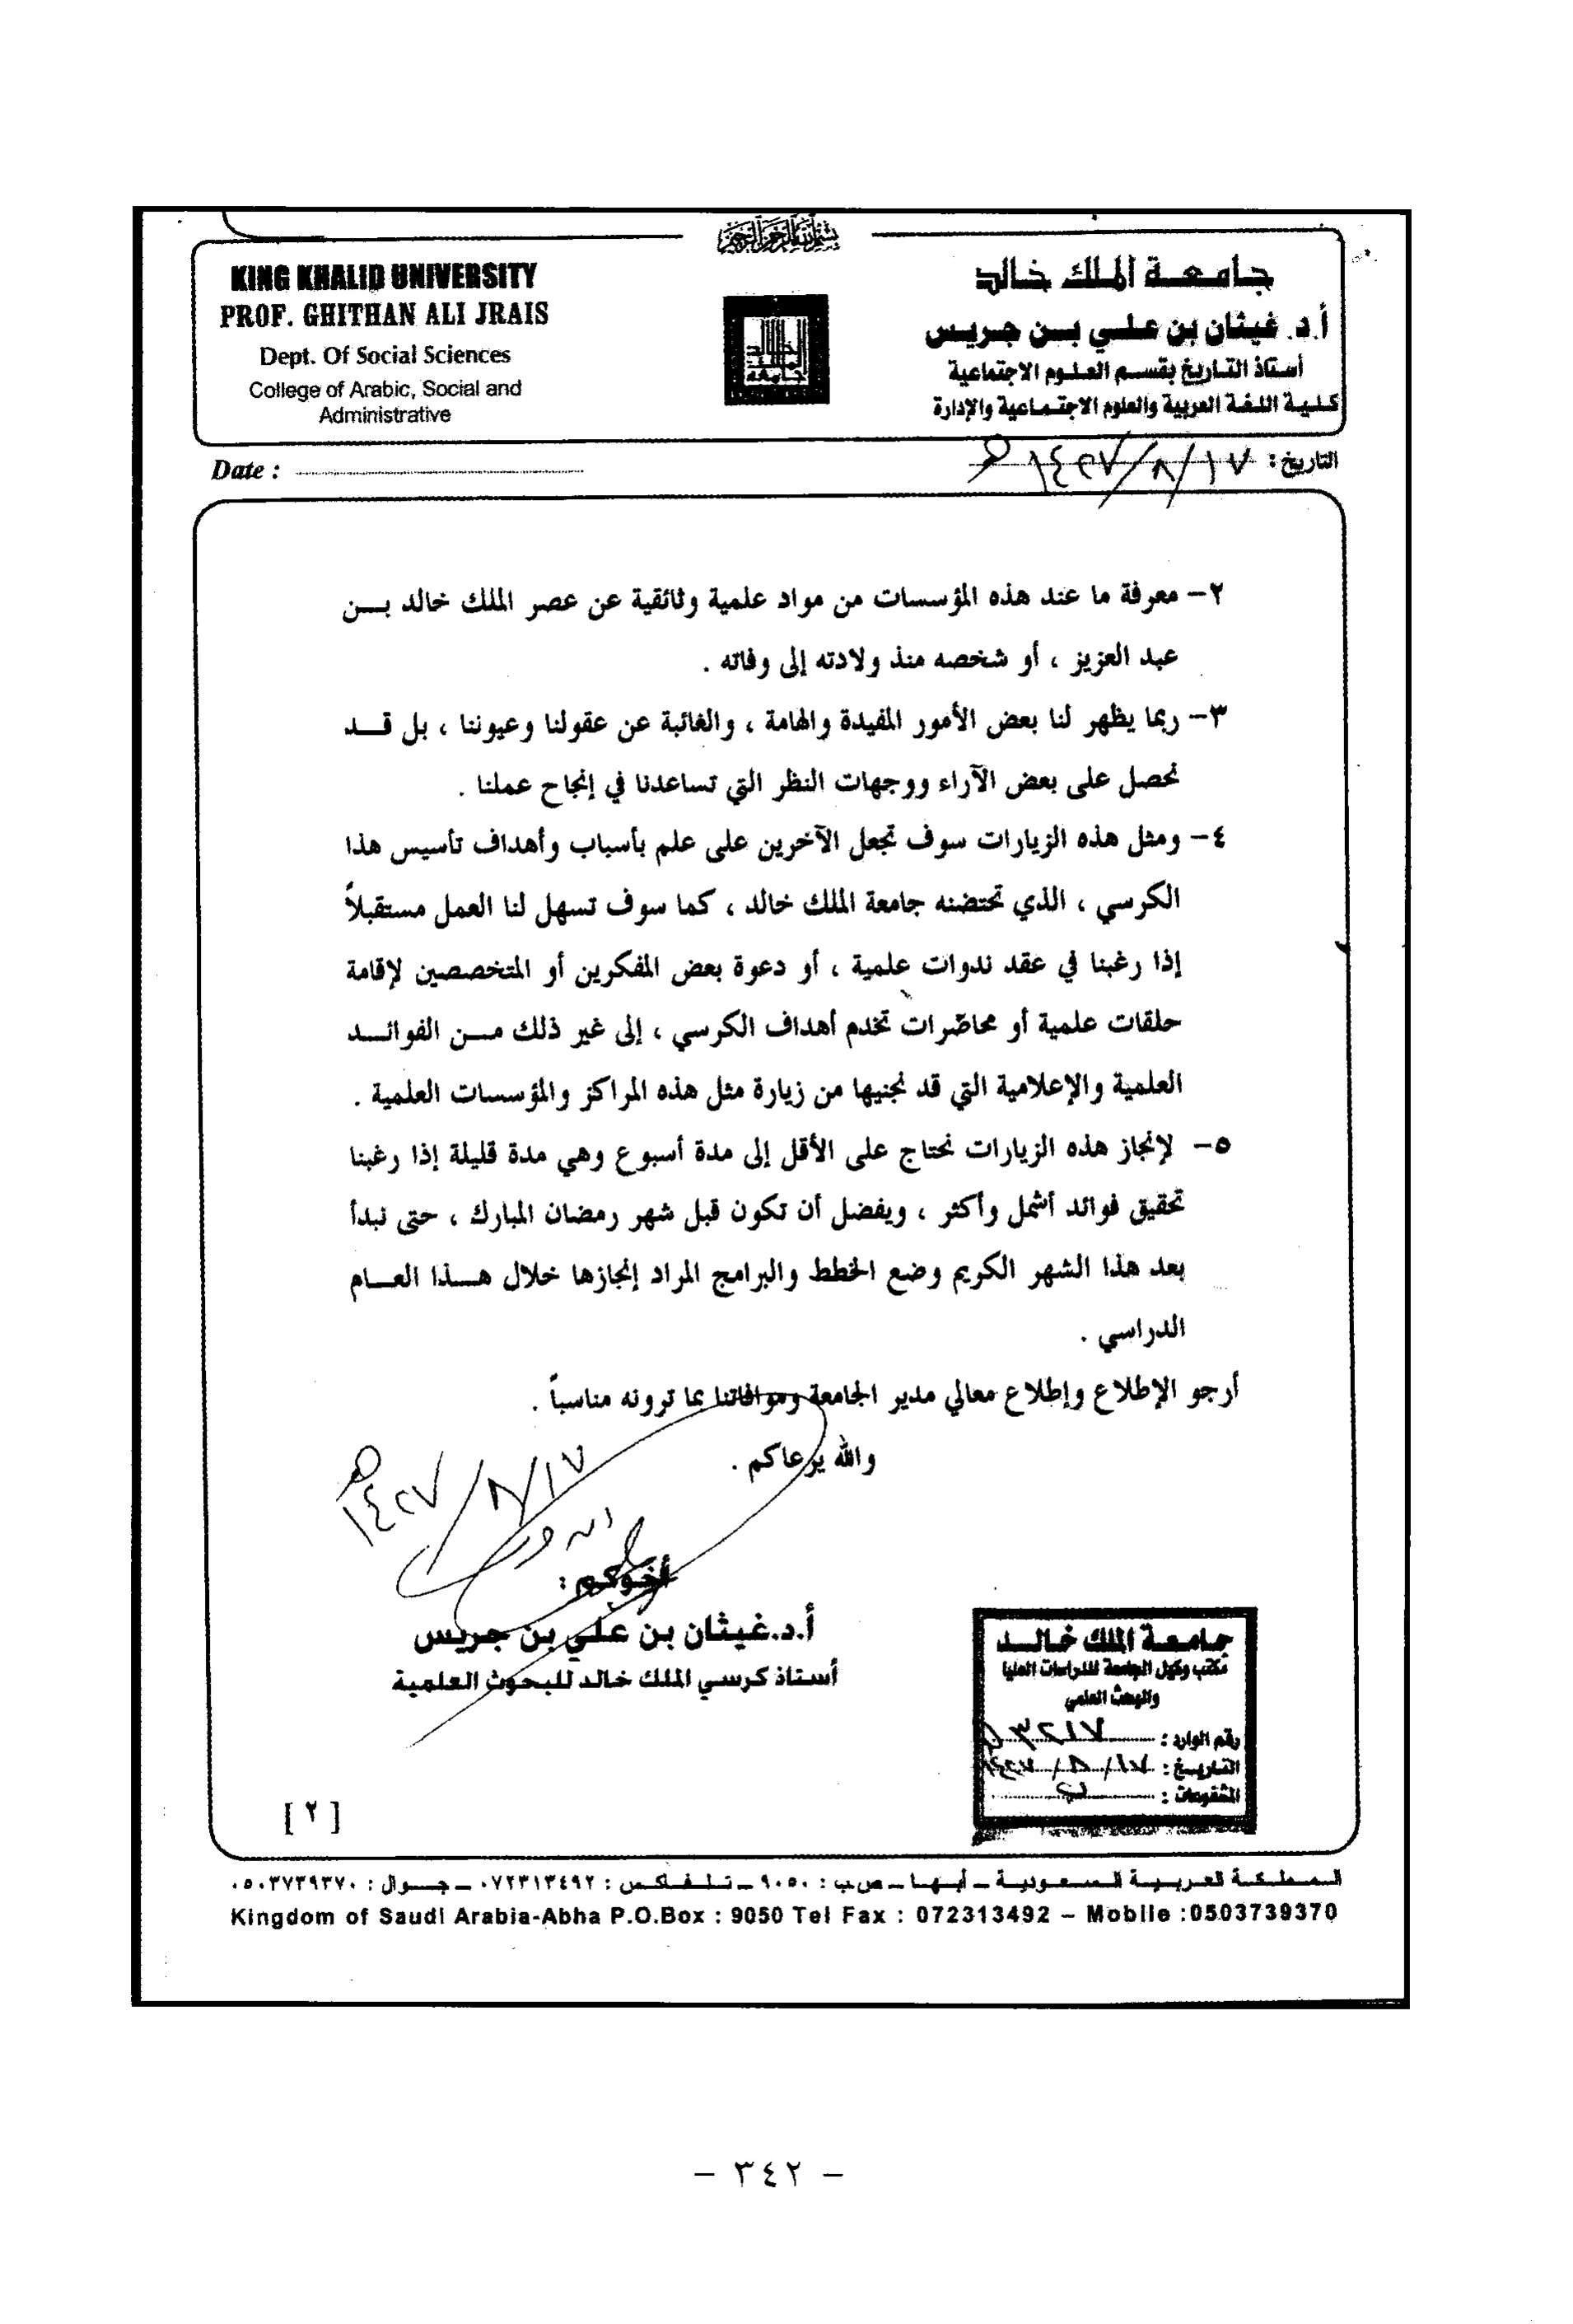 بسم الله الرحمن الرحيم
KING KHALID UNIVERSITY
PROF. GHITHAN ALI JRAIS
Dept. Of Social Sciences
College of Arabic, Social and
Administrative
جامعة الملك خالد
أ.د. غيثان بن علي بن جريس
أستاذ التاريخ بقسم العلوم الاجتماعية
كلية اللغة العربية والعلوم الاجتماعية والإدارة
Date :
التاريخ: ١٤٢٧/٨/١٧هـ
٢- معرفة ما عند هذه المؤسسات من مواد علمية وثائقية عن عصر الملك خالد بن
عبد العزيز ، أو شخصه منذ ولادته إلى وفاته .
٣- ربما يظهر لنا بعض الأمور المفيدة والهامة ، والغائبة عن عقولنا وعيوننا ، بل قد
نحصل على بعض الآراء ووجهات النظر التي تساعدنا في إنجاح عملنا .
٤- ومثل هذه الزيارات سوف تجعل الآخرين على علم بأسباب وأهداف تأسيس هذا
الكرسي ، الذي تحتضنه جامعة الملك خالد ، كما سوف تسهل لنا العمل مستقبلاً
إذا رغبنا في عقد ندوات علمية ، أو دعوة بعض المفكرين أو المتخصصين لإقامة
حلقات علمية أو محاضرات تخدم أهداف الكرسي ، إلى غير ذلك من الفوائد
العلمية والإعلامية التي قد نجنيها من زيارة مثل هذه المراكز والمؤسسات العلمية .
٥- لإنجاز هذه الزيارات نحتاج على الأقل إلى مدة أسبوع وهي مدة قليلة إذا رغبنا
تحقيق فوائد أشمل وأكثر ، ويفضل أن تكون قبل شهر رمضان المبارك ، حتى نبدأ
بعد هذا الشهر الكريم وضع الخطط والبرامج المراد إنجازها خلال هذا العام
الدراسي .
أرجو الإطلاع وإطلاع معالي مدير الجامعة وموافاتنا بما ترونه مناسباً .
والله يرعاكم .
١٤٢٧/٨/١٧هـ
أخوكم :
أ.د.غيثان بن علي بن جريس
أستاذ كرسي الملك خالد للبحوث العلمية
جامعة الملك خالد
مكتب وكيل الجامعة للدراسات العليا
والبحث العلمي
رقم الوارد :
التاريخ : ١٤٢٧/٨/١٧
المشفوعات :
[ ٢ ]
المملكة العربية السعودية - أبها - ص.ب : ٩٠٥٠ - تلفاكس : ٠٧٢٣١٣٤٩٢ - جوال : ٠٥٠٣٧٣٩٣٧٠
Kingdom of Saudi Arabia-Abha P.O.Box : 9050 Tel Fax : 072313492 – Mobile :0503739370
- ٣٤٢ -